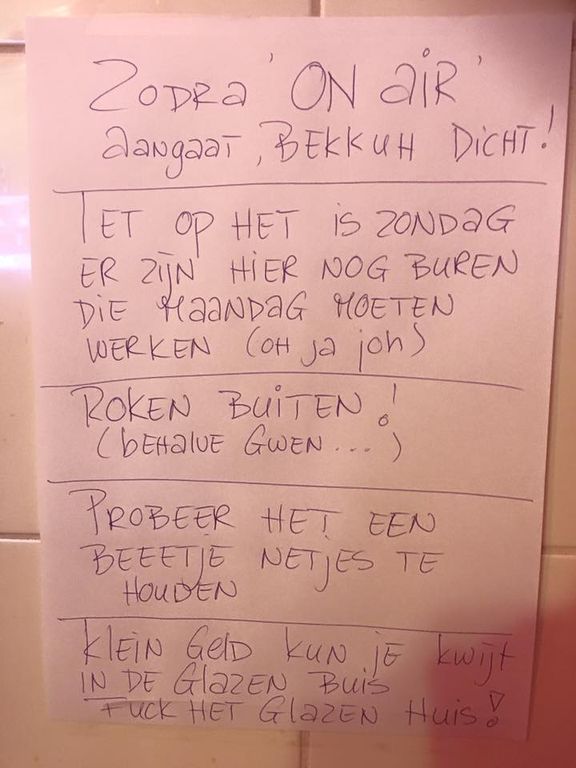 ZODRA 'ON AIR'
aangaat, BEKKUH DICHT!
LET OP HET IS ZONDAG
ER ZIJN HIER NOG BUREN
DIE MAANDAG MOETEN
WERKEN (OH ja joh)
ROKEN BUITEN!
(bEHALVE GWEN...)
PROBEER HET EEN
BEEETJE NETJES TE
HOUDEN
KLEIN GELD KUN JE kwijt
IN DE GLAZEN BUIS
FUCK HET GLAZEN HUIS!